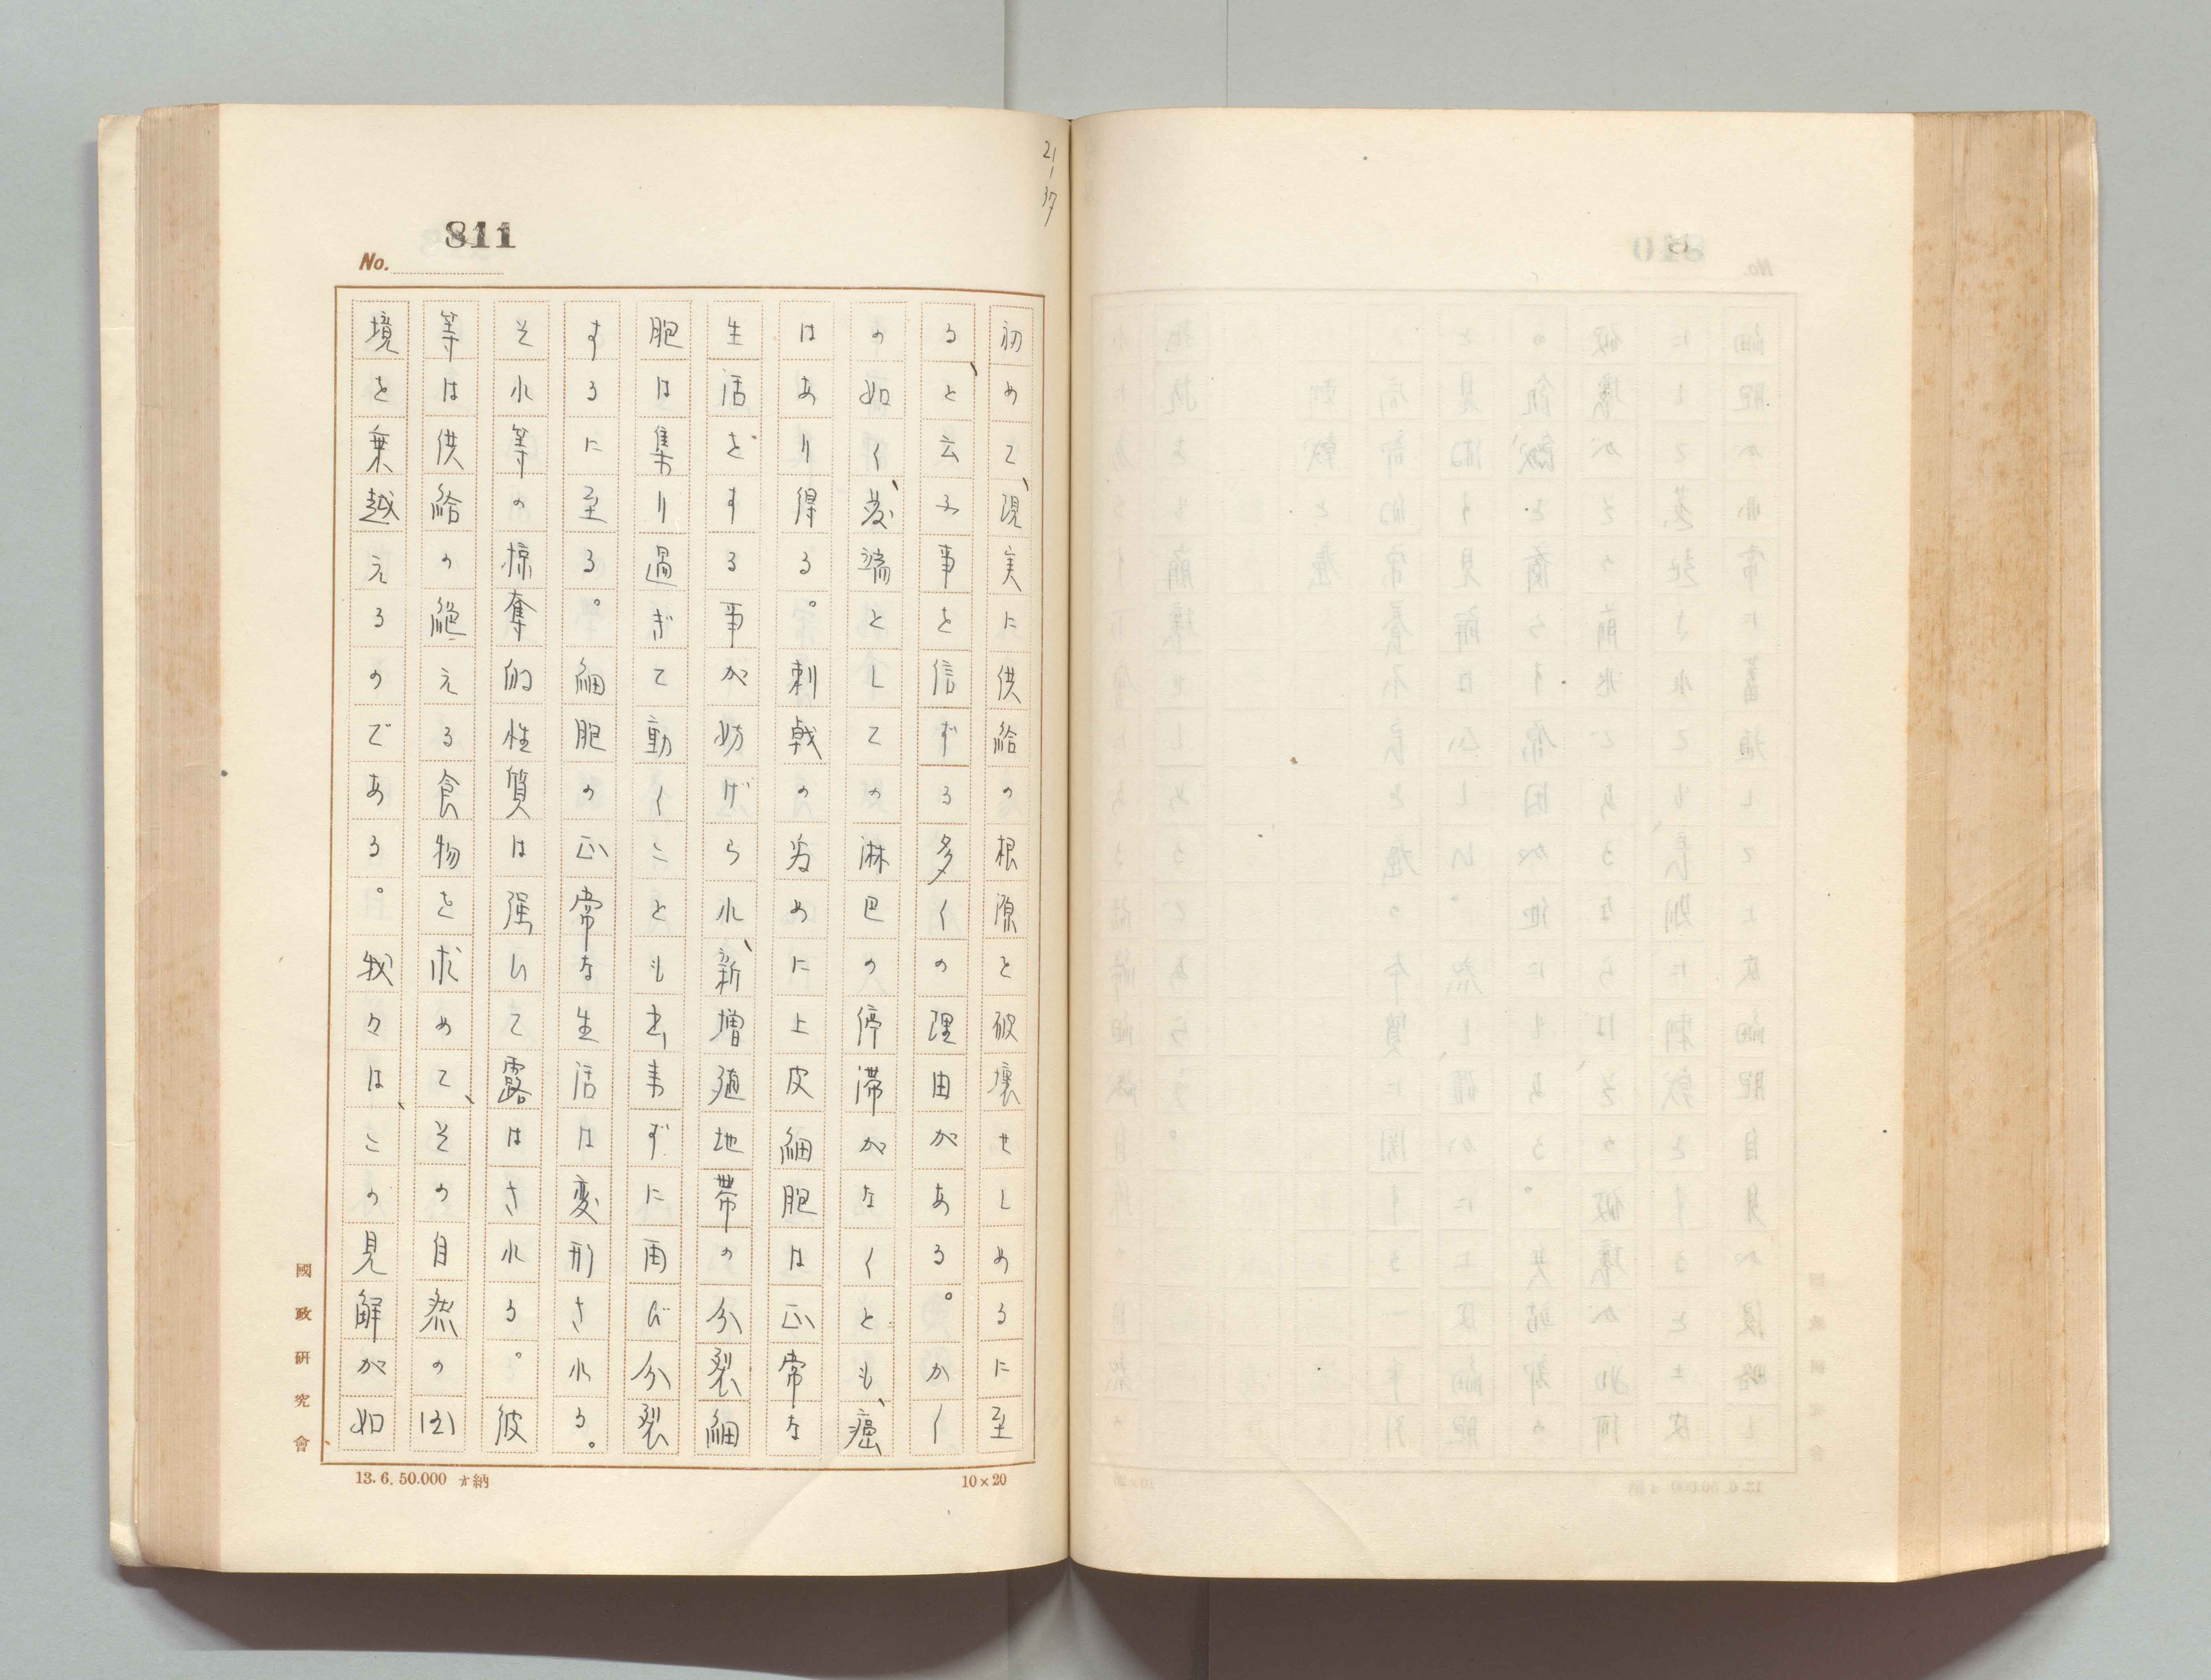 21-37
811
No.
初めて、現実に供給の根源と破壊せしめるに至
る、と云ふ事を信ずる多くの理由がある。かく
の如く、発端としての淋巴の停滞がなくとも、癌
はあり得る。刺戟の為めに上皮細胞は正常な
生活をする事が妨げられ、新増殖地帯の分裂細
胞は集り過ぎて動くことも出来ずに再び分裂
するに至る。細胞の正常な生活は変形される。
それ等の掠奪的性質は強いて露はされる。彼
等は供給の絶える食物を求めて、その自然の国
境を乗越えるのである。我々は、この見解が如
國政研究會
13.6.50.000 オ納
10×20